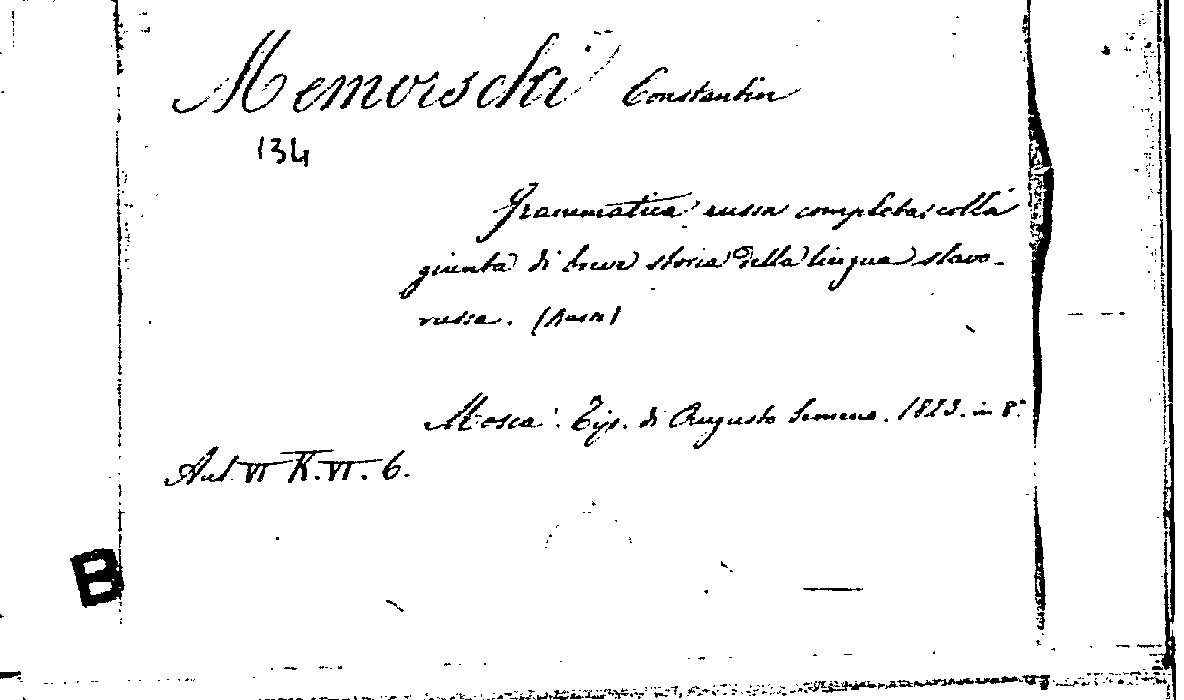 Memorschi Constantin
134
Grammatica russa completa, colla
giunta di breve storia della lingua slavo-
russa. (Russo)
Mosca. Tip. di Augusto Semene. 1823. in 8°
Aul VI K.VI. 6.
B